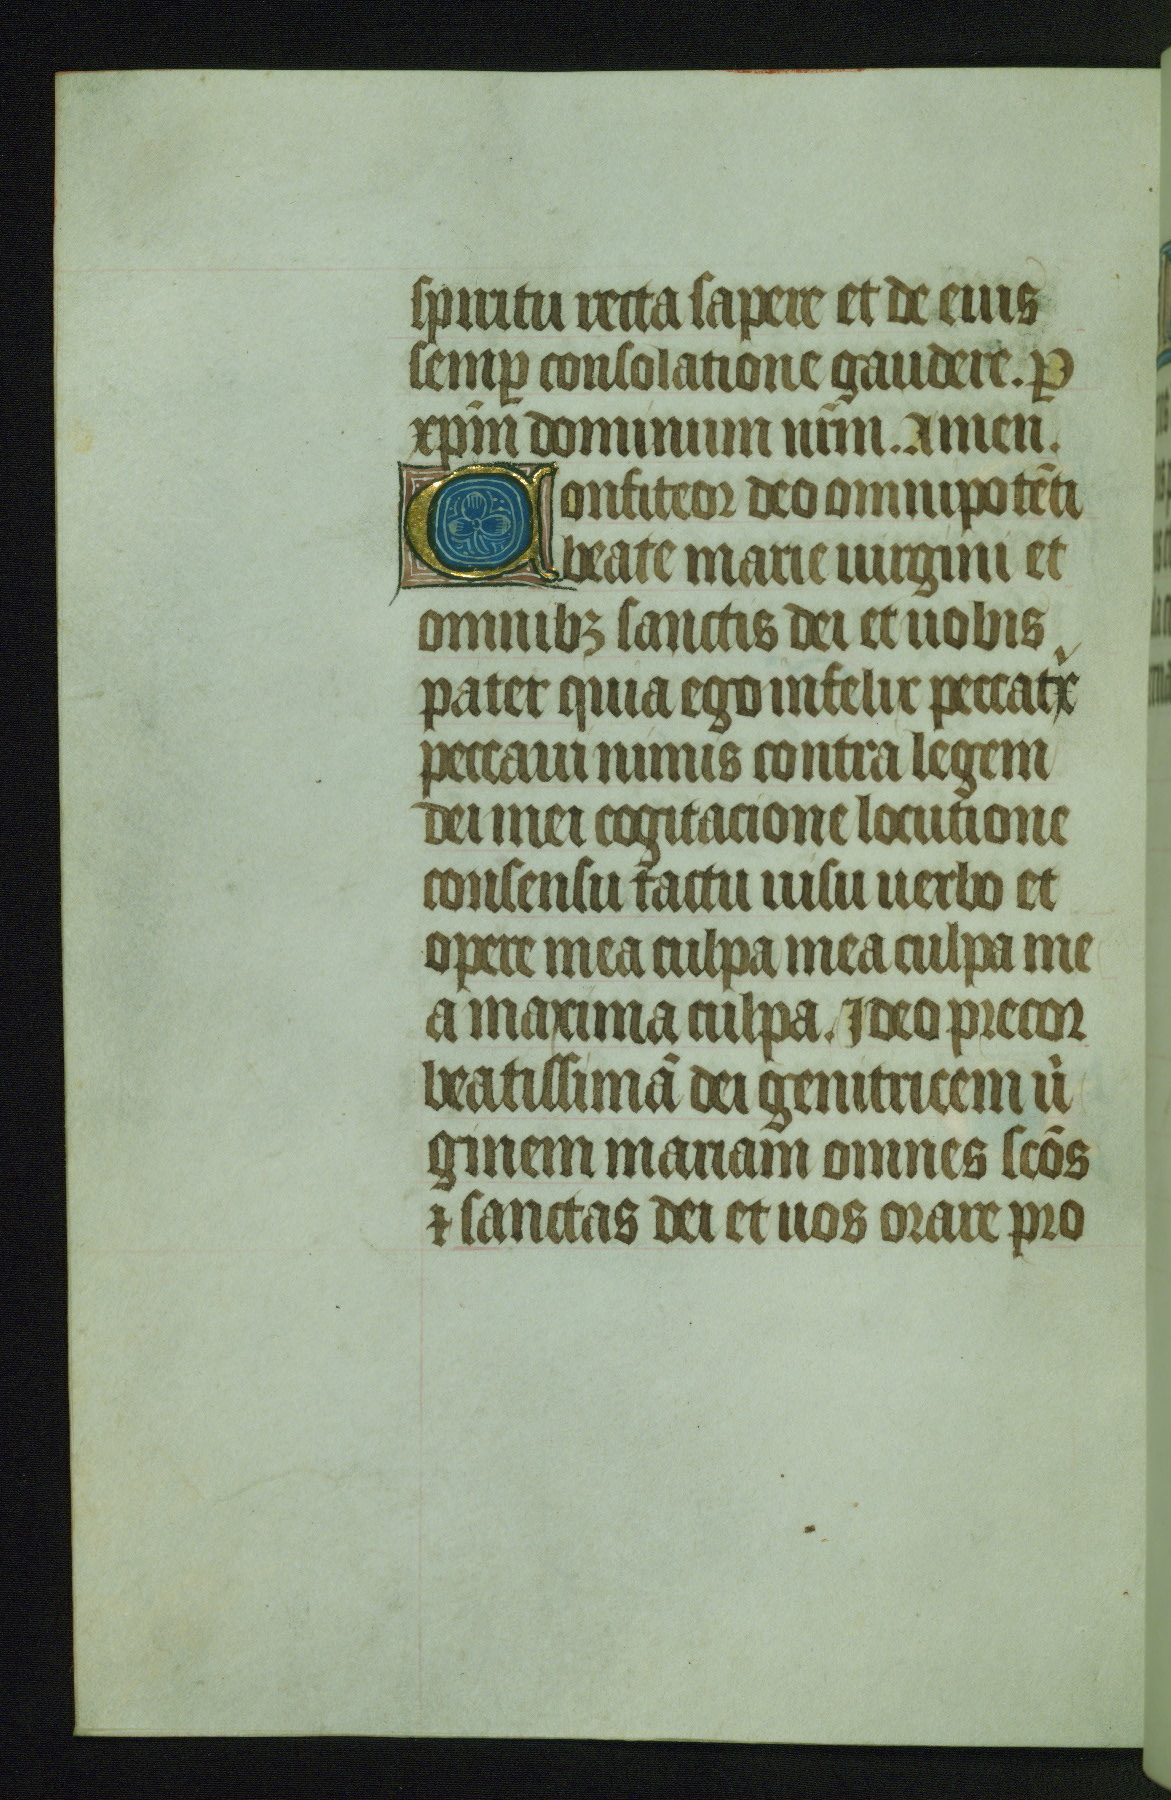 spiritu recta sapere et de eius
semꝑ consolatione gaudere. ꝑ
xp̄m dominum nr̄m. Amen.
Confiteor deo omnipotēti
beate marie uirgini et
omnibꝫ sanctis dei et uobis
pater quia ego infelix peccatͥx
peccaui nimis contra legem
dei mei cogitacione locutione
consensu tactu uisu uerbo et
opere mea culpa mea culpa me
a maxima culpa. Ideo precor
beatissimā dei genitricem uͥ
ginem mariam omnes scōs
⁊ sanctas dei et uos orare pro